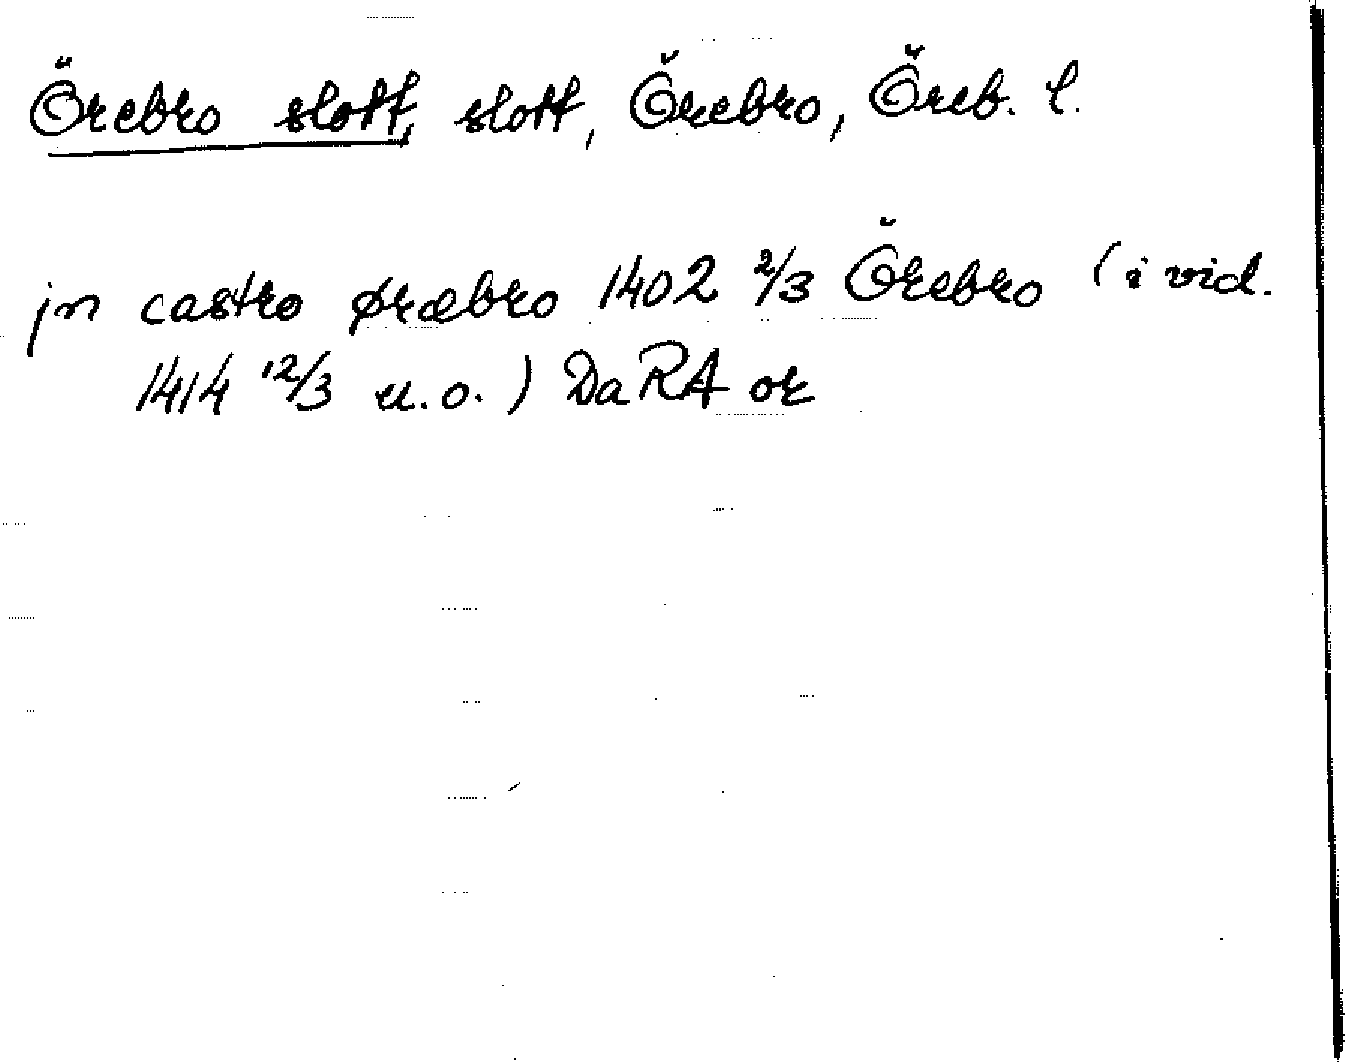 Örebro slott, slott, Örebro, Öreb. l.
jn castro øræbro 1402 2/3 Örebro (i vid.
1414 12/3 u.o.) DaRA or